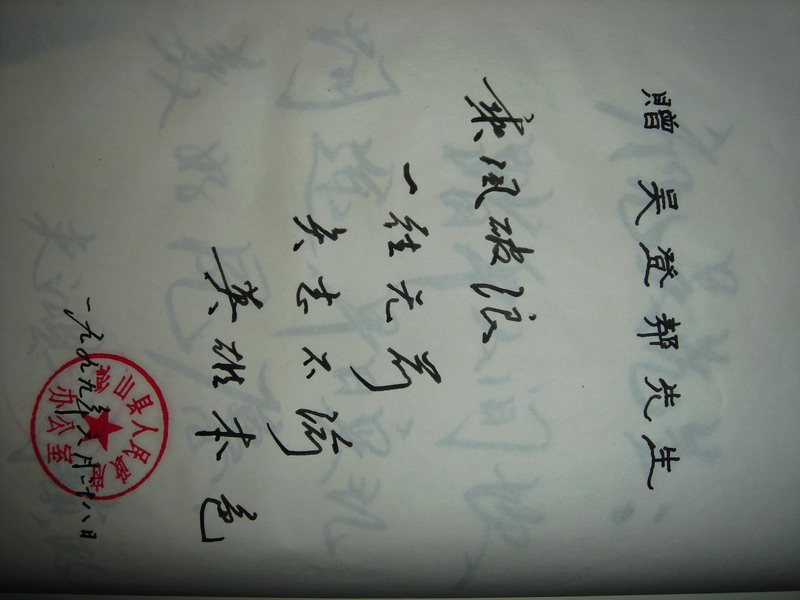 贈 吴登帮先生:
乘风破浪
一往无前
矢志不渝
英雄本色
一九九九年 月二十八日
山县人民政府
办公室